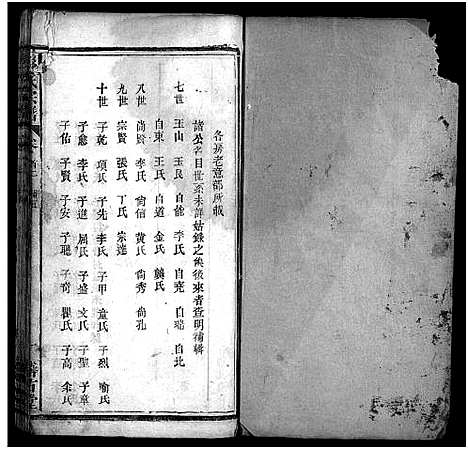 各房老意部所載
諸公名目世系未詳姑錄之俟後來者查明補輯
七世　王山　王良　自能　李氏　自堯　自瑞　自北
自東　王氏　自道　金氏　龔氏
八世　尚賢　李氏　尚信　黃氏　尚秀　尚孔
九世　宗賢　張氏　丁氏　宗達
十世　子乾　項氏　子先　李氏　子甲　童氏　子烈　喻氏
子慈　李氏　子進　屈氏　子盛　文氏　子聖　子章
子佑　子賢　子安　子聰　子尚　瞿氏　子高　余氏